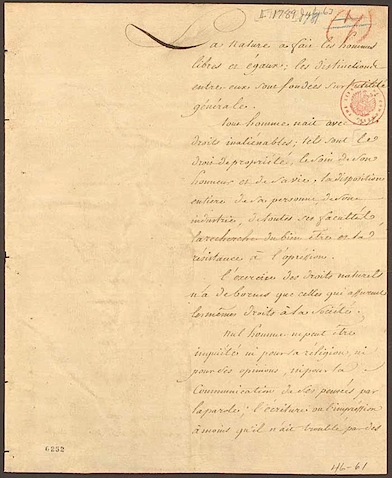 La nature a fait les hommes
libres et egaux; les distinctions
entre eux sont fondées sur l'utilité
générale.
tout homme nait avec
droits inaliénables; tels sont le
droit de propriété, le soin de son
honneur et de sa vie, la disposition
entiere de sa personne, de son
industrie, de toutes ses facultés,
la recherche du bien être et la
résistance à l'opréssion.
l'exercice des droits naturels
n'a de bornes que celles qui assurent
les mêmes droits à la Société.
nul homme ne peut être
inquiété ni pour sa réligion, ni
pour ses opinions, ni pour la
Communication de ses pensées par
la parole; l'ecriture ou l'impréssion
à moins qu'il n'ait troublé par des
6252
46-61